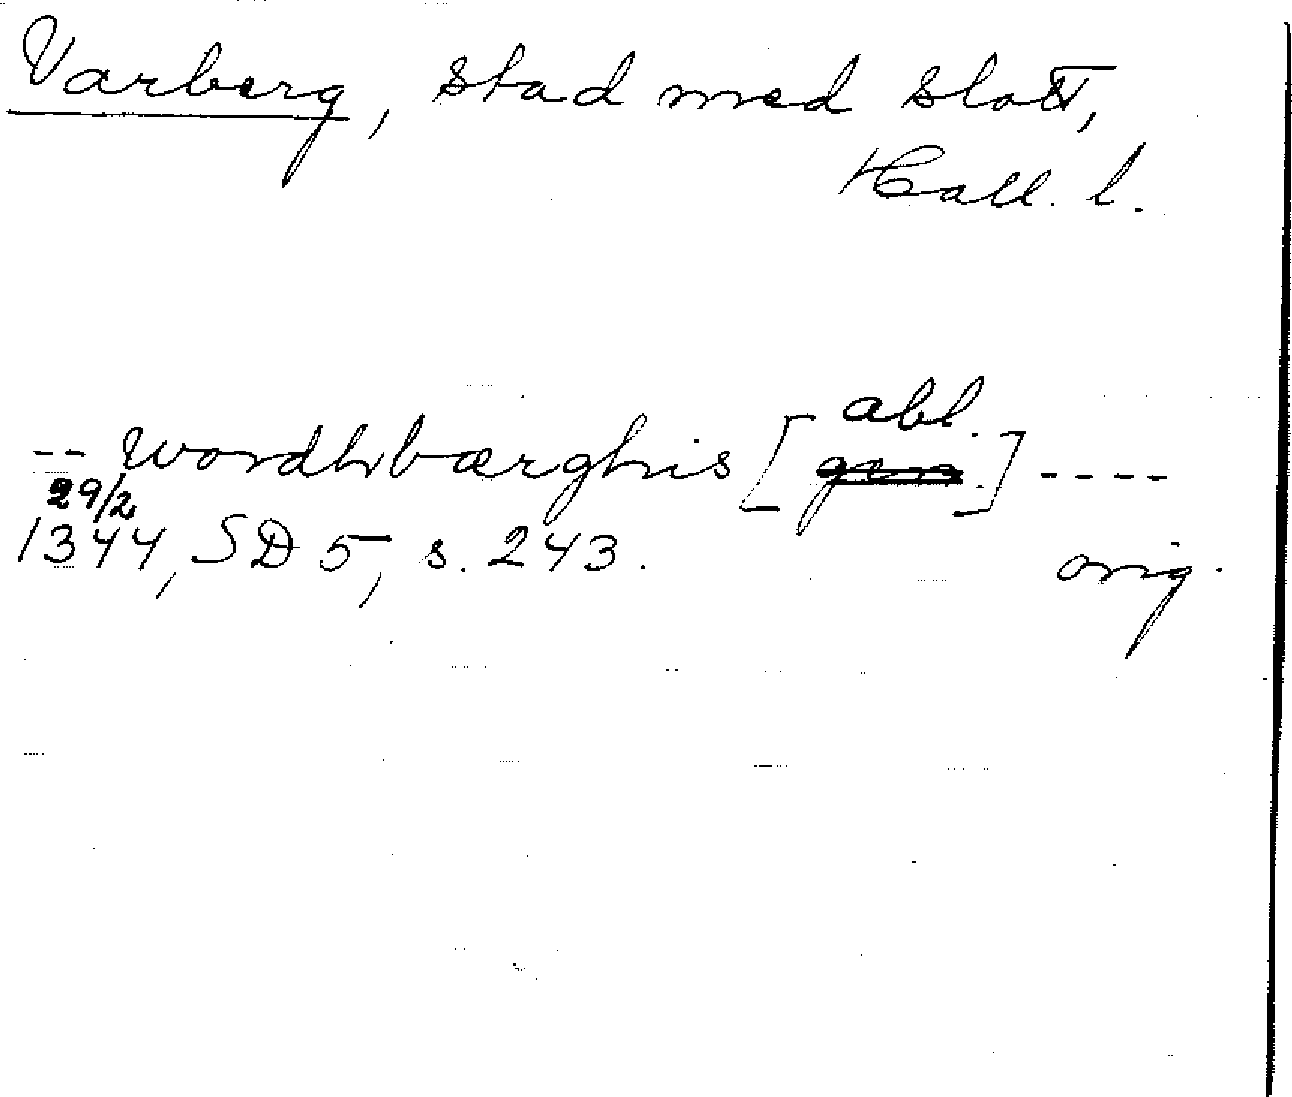 Varberg, stad med slott,
Hall. l.
abl.
-- wordhbærghis [ ] ----
29/2
1344, SD 5, s. 243.
orig.